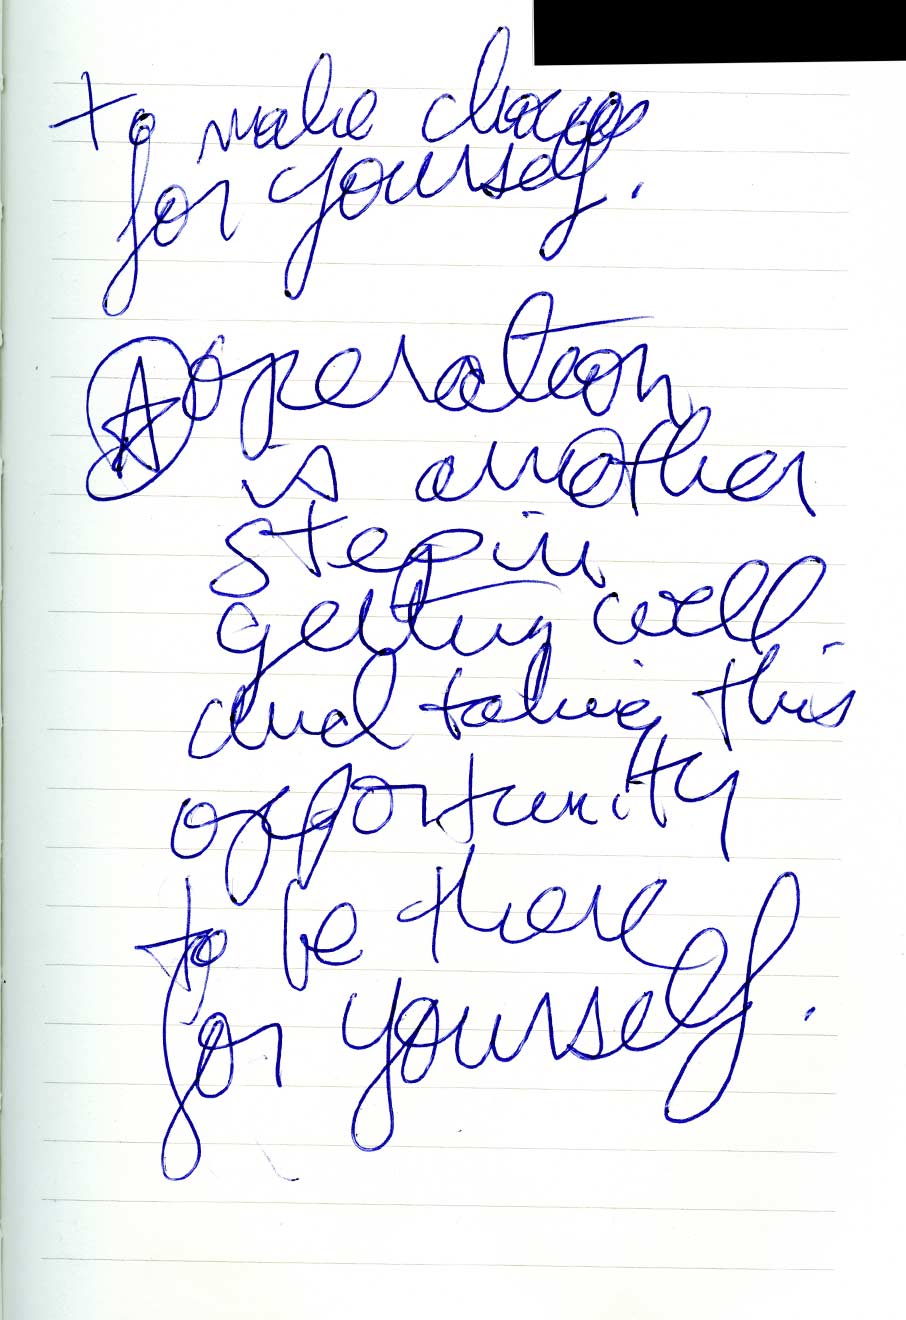 to make change
for yourself.
operation
is another
step in
getting well
and taking this
opportunity
to be there
for yourself.